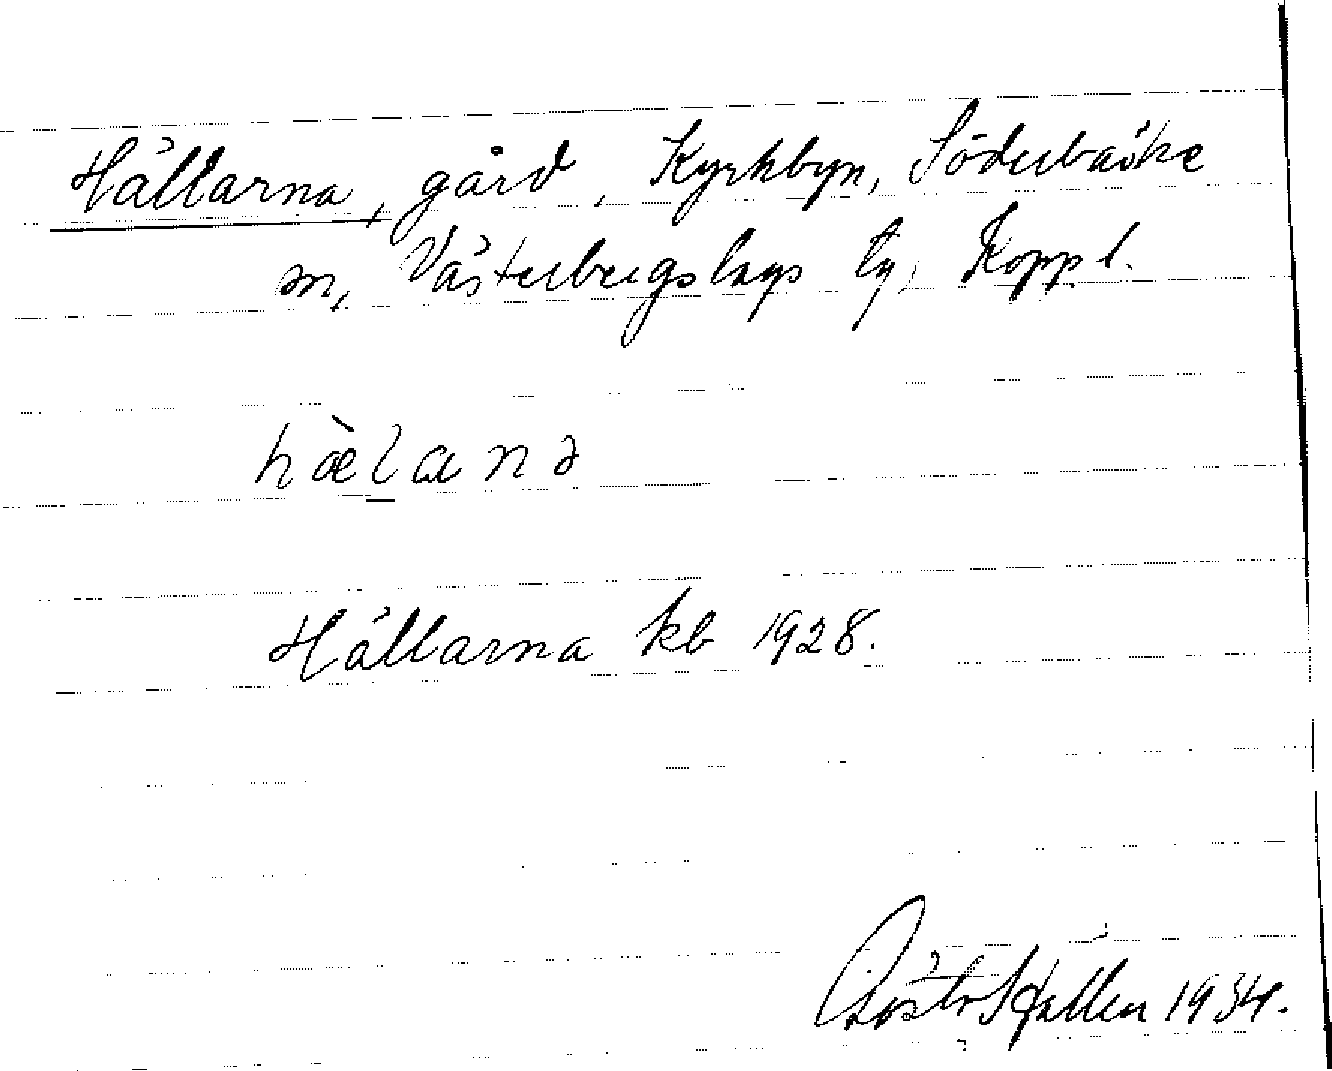 Hällarna, gård, Kyrkbyn, Söderbärke
sn, Västerbergslags tg, Koppl.
hælana
Hällarna kb 1928.
1934.